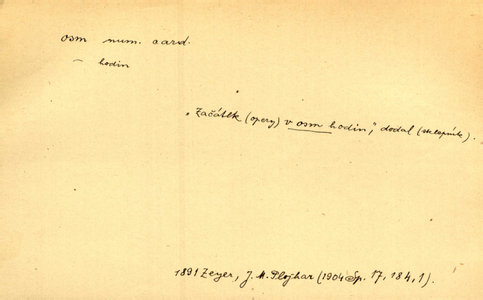 osm num. card.
– hodin
„Začátek (opery) v osm hodin", dodal (sklepník).
1891 Zeyer, J. M. Plojhar (1904 Sp. 17, 184, 1).